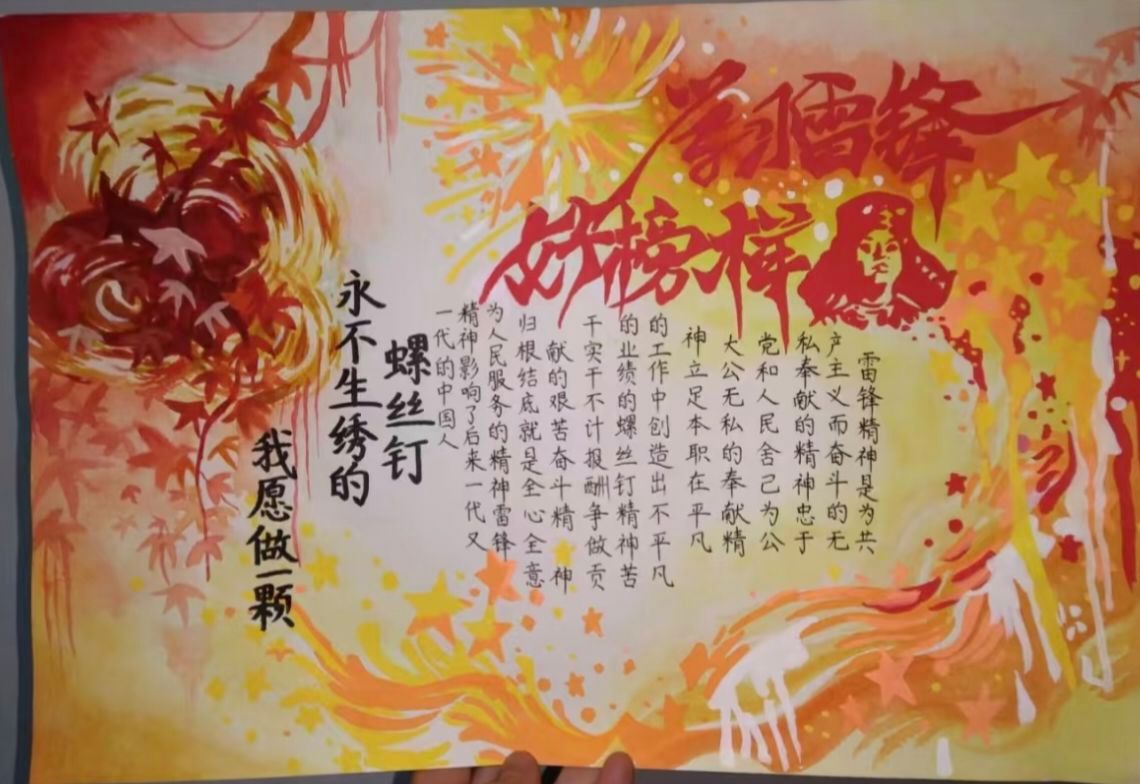 学习雷锋
好榜样
雷锋精神是为共
产主义而奋斗的无
私奉献的精神忠于
党和人民舍己为公
大公无私的奉献精
神立足本职在平凡
的工作中创造出不平凡
的业绩的螺丝钉精神苦
干实干不计报酬争做贡
献的艰苦奋斗精神
归根结底就是全心全意
为人民服务的精神雷锋
精神影响了后来一代又
一代的中国人
我愿做一颗
永不生绣的
螺丝钉